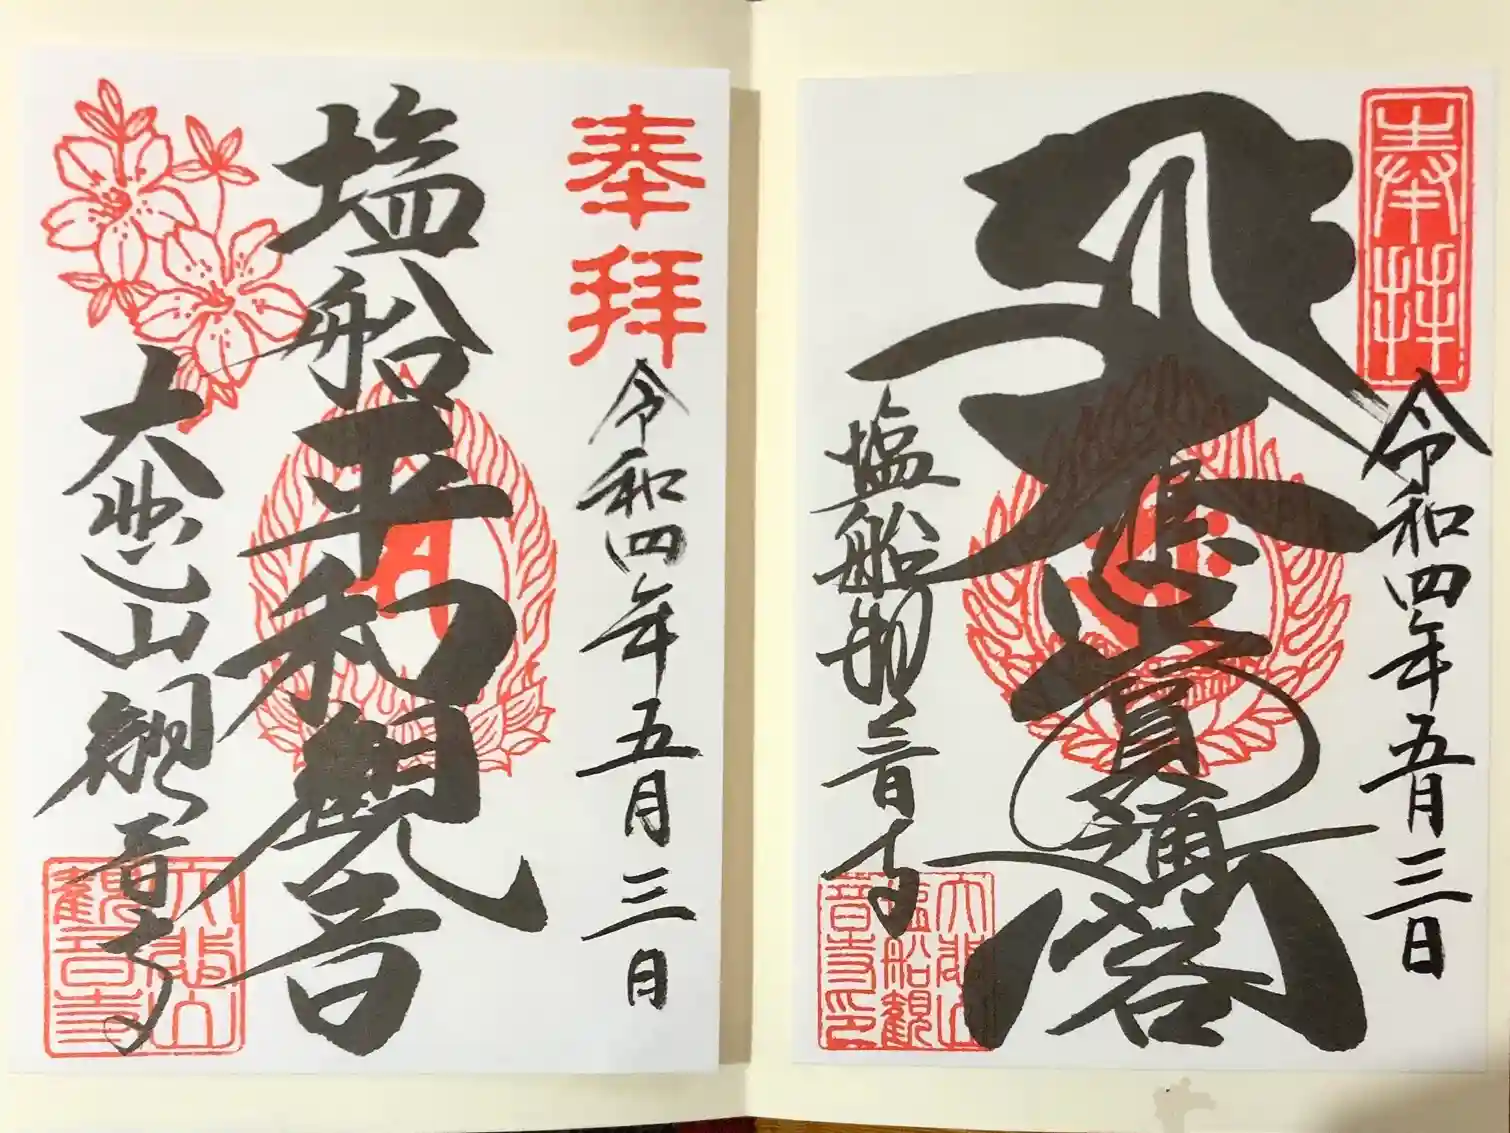 奉拝
令和四年五月三日
大悲
閣
塩船観音寺
大悲山
塩船観
音寺印
奉拝
令和四年五月三日
塩船平和観音
大悲山観音寺
大悲山
観音寺